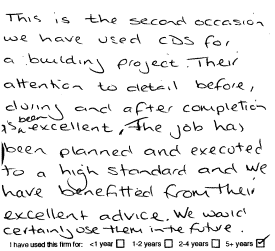 This is the second occasion
we have used CDS for
a building project. Their
attention to detail before,
during and after completion
is been excellent, The job has
been planned and executed
to a high standard and we
have benefitted from their
excellent advice. We would
certainly use them in the future.
I have used this firm for: <1 year ☐ 1-2 years ☐ 2-4 years ☐ 5+ years ☑